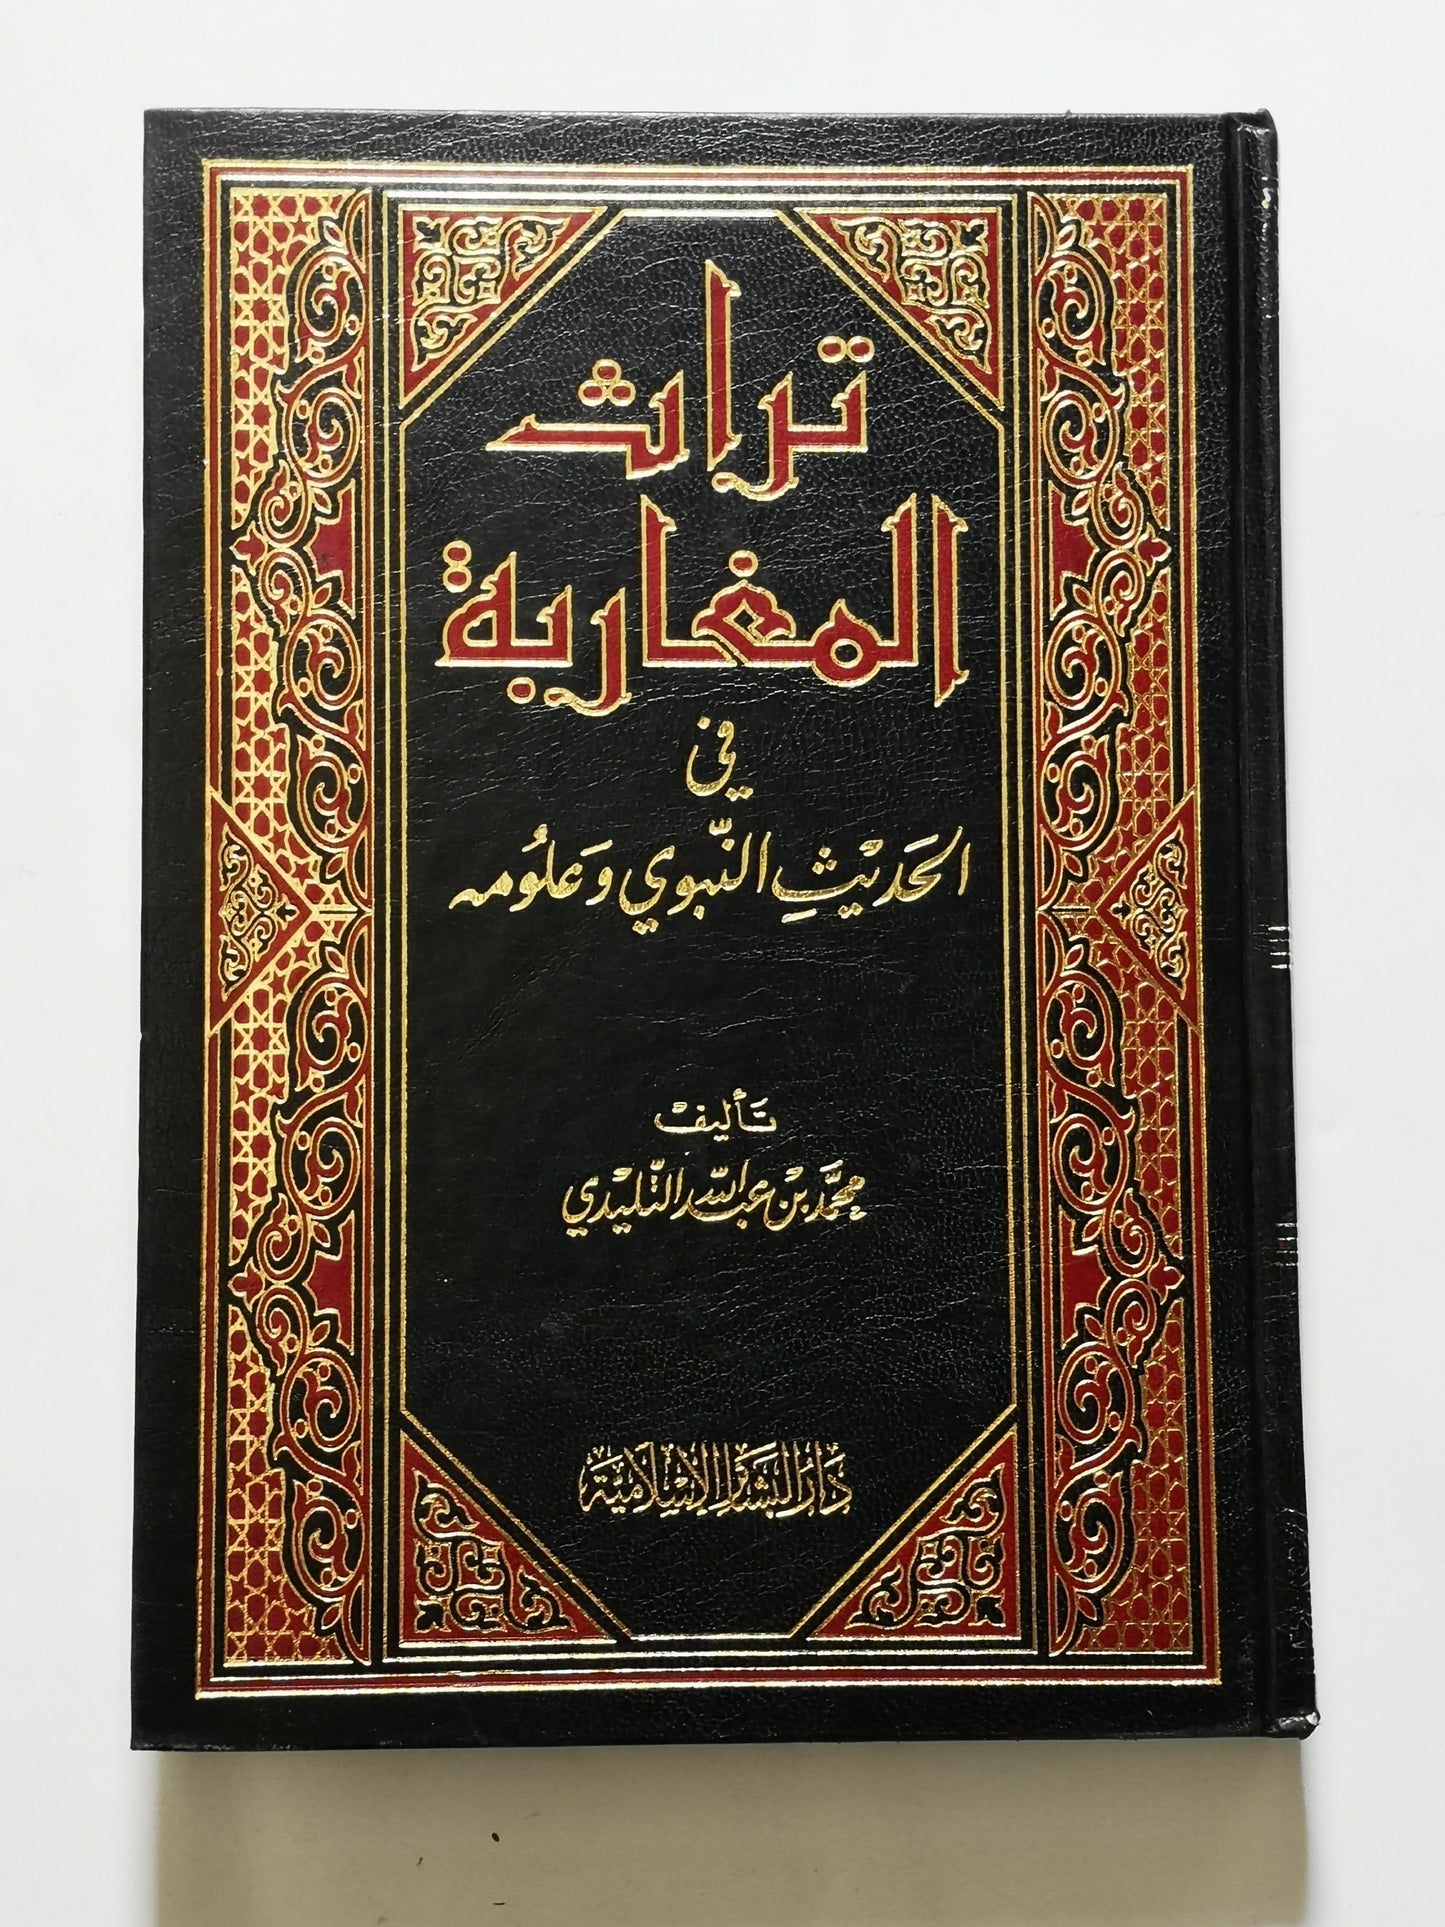 تراث
المغاربة
في
الحَديْثِ النّبوي وَعلُومه
تَأليفْ
محمَّد بْن عبد اللّه التّليْدي
دَارُ البَشَائر الإسْلاميَّة